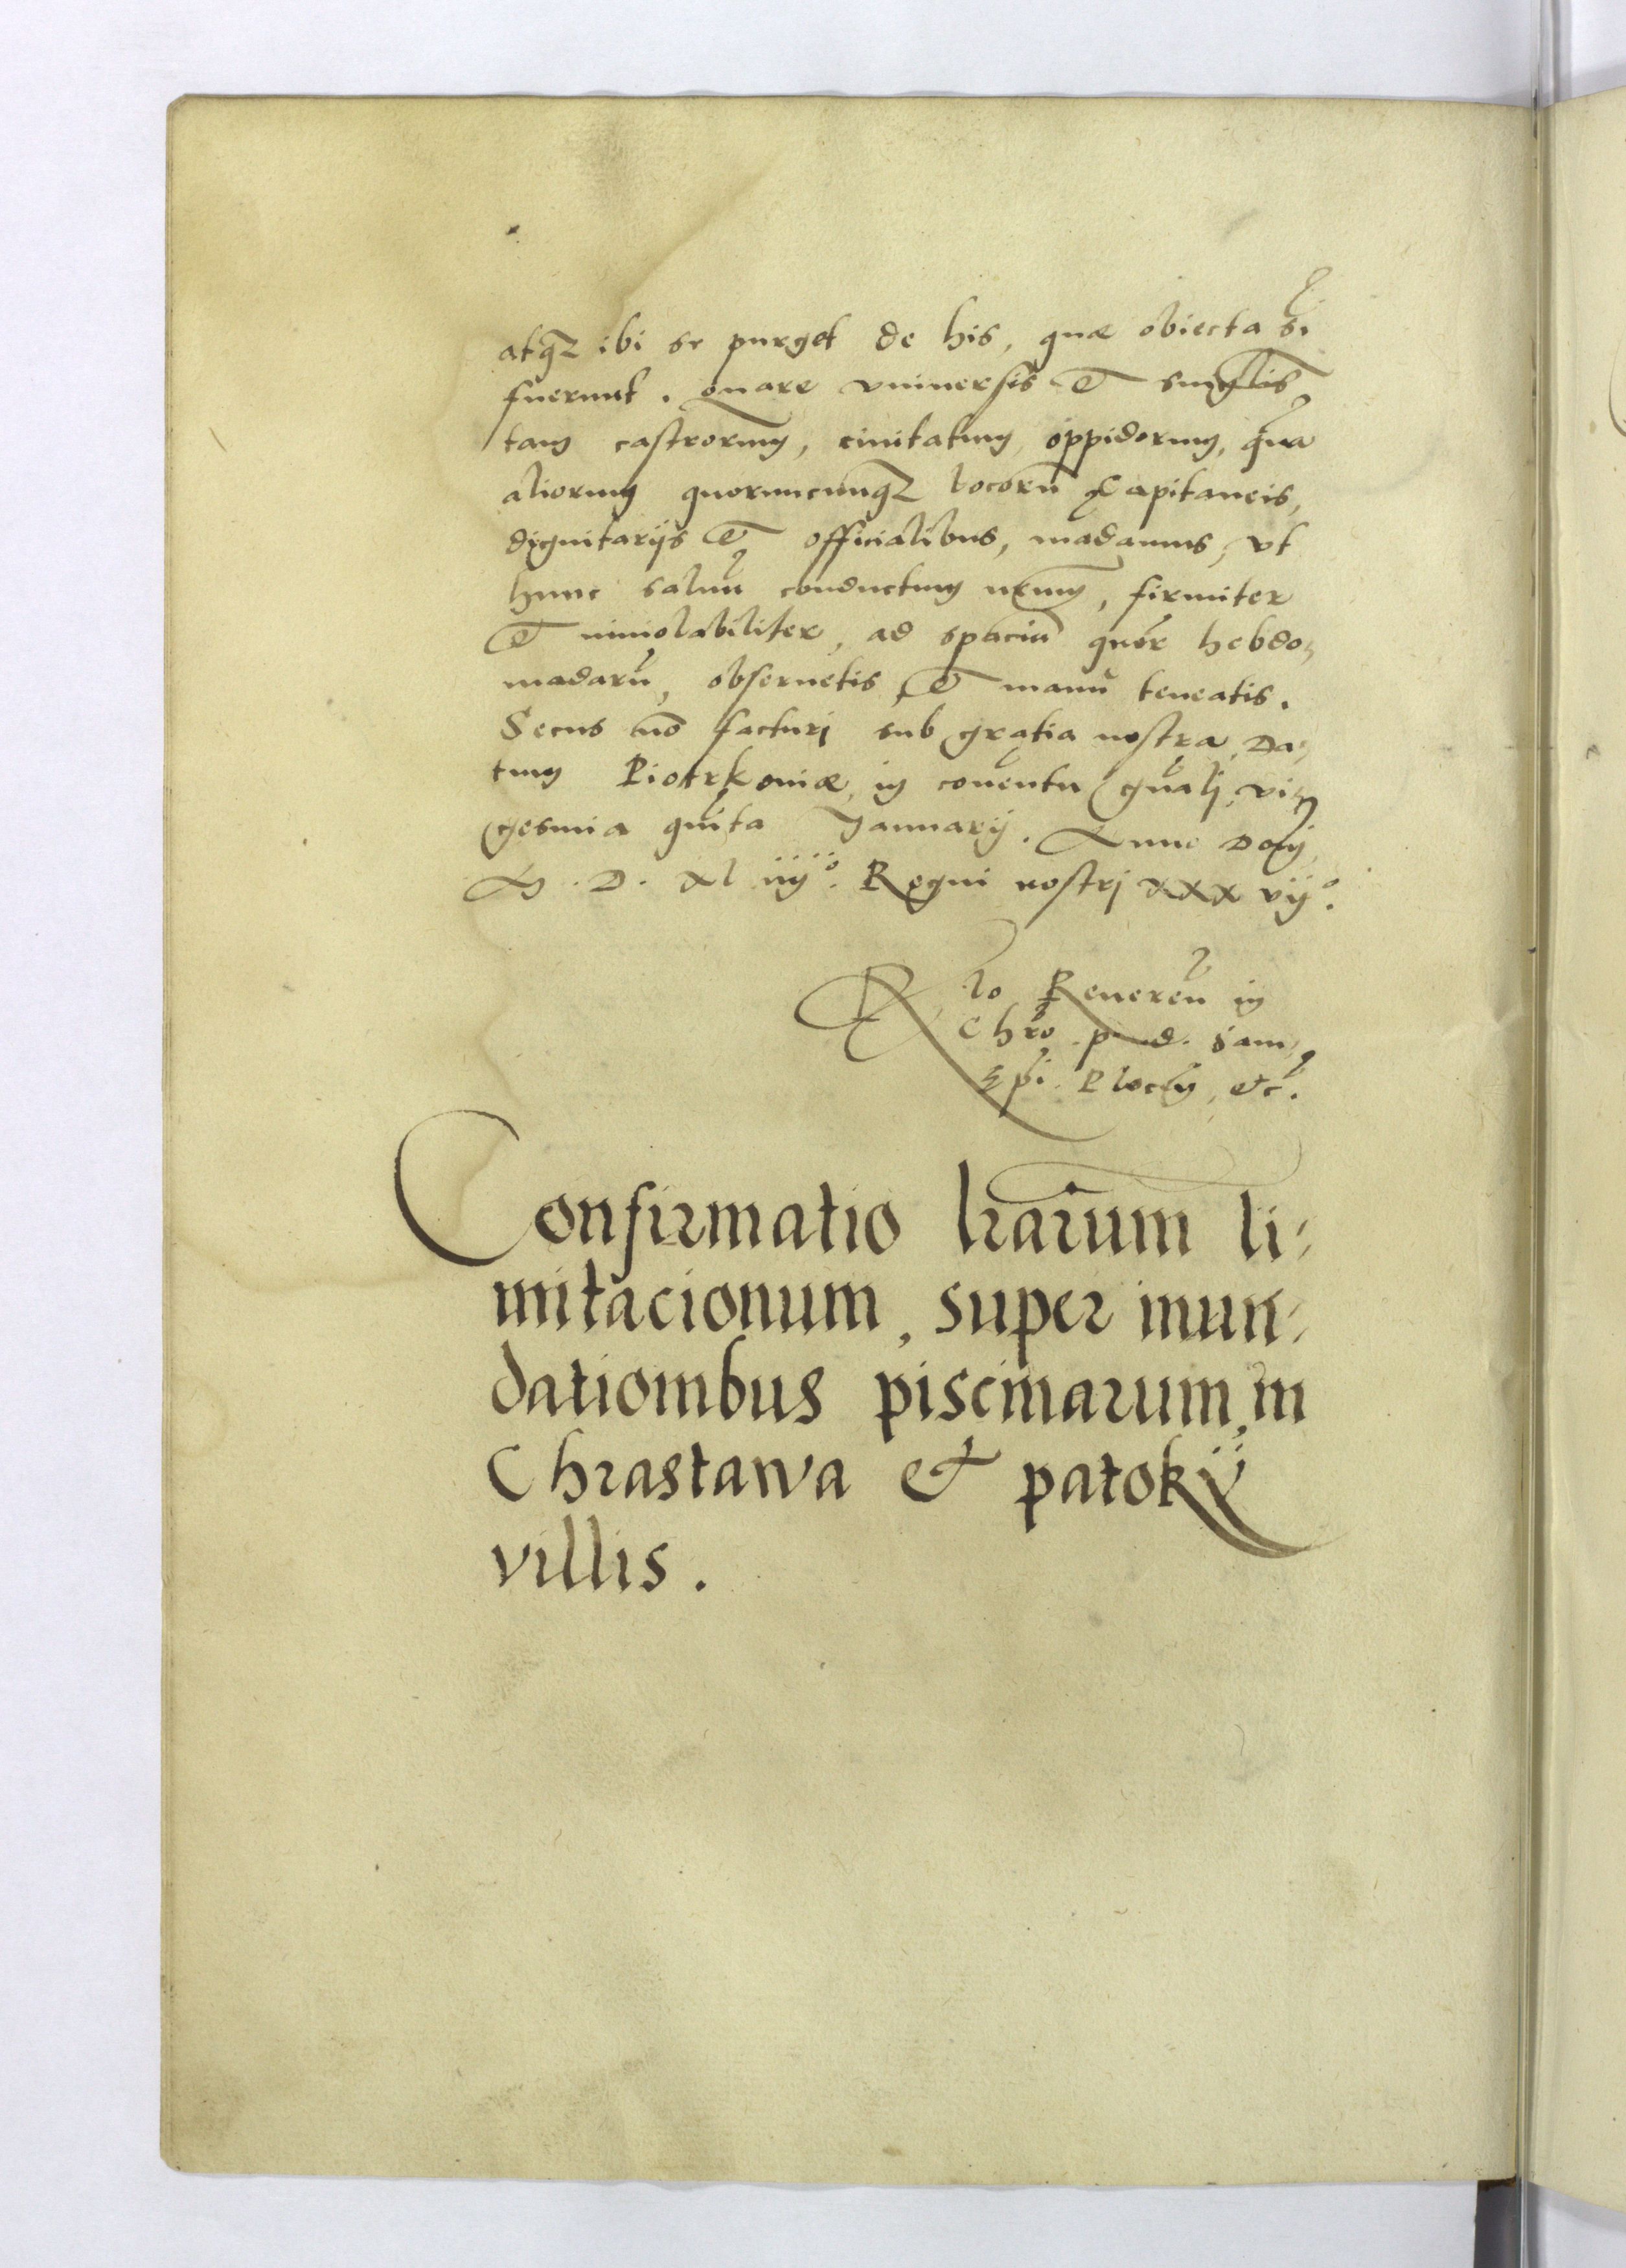 atq₃ ibi se purget de his, quæ obiecta si
fuerint. Quare vniuersis et singlis
tam castrorum, ciuitatum, oppidorum, qua
aliorum quorumcunq₃ locorū Capitaneis,
dignitarijs et officialibus, mādamus, vt
hunc saluū conductum nrum, firmiter
et inuiolabiliter, ad spaciū quor hebdo,
madarū, obseruetis, et manū teneatis.
Secus nō facturi sub gratia nostra, Da,
tum Piotrkouiæ, in conuentu gnāli, vi,
gesima quīta Januarij. Anno Dom̄,
M. D. xl iiij°. Regni nostrj xxx vij°.
R̄lo Reueren̄ in
Chrō p. d. Sam,
Epi. Plocen̄, etc.
Confirmatio lrārum li,
mitacionum, super inun,
dationibus piscinarum, in
Chrastawa et patokÿ
villis.